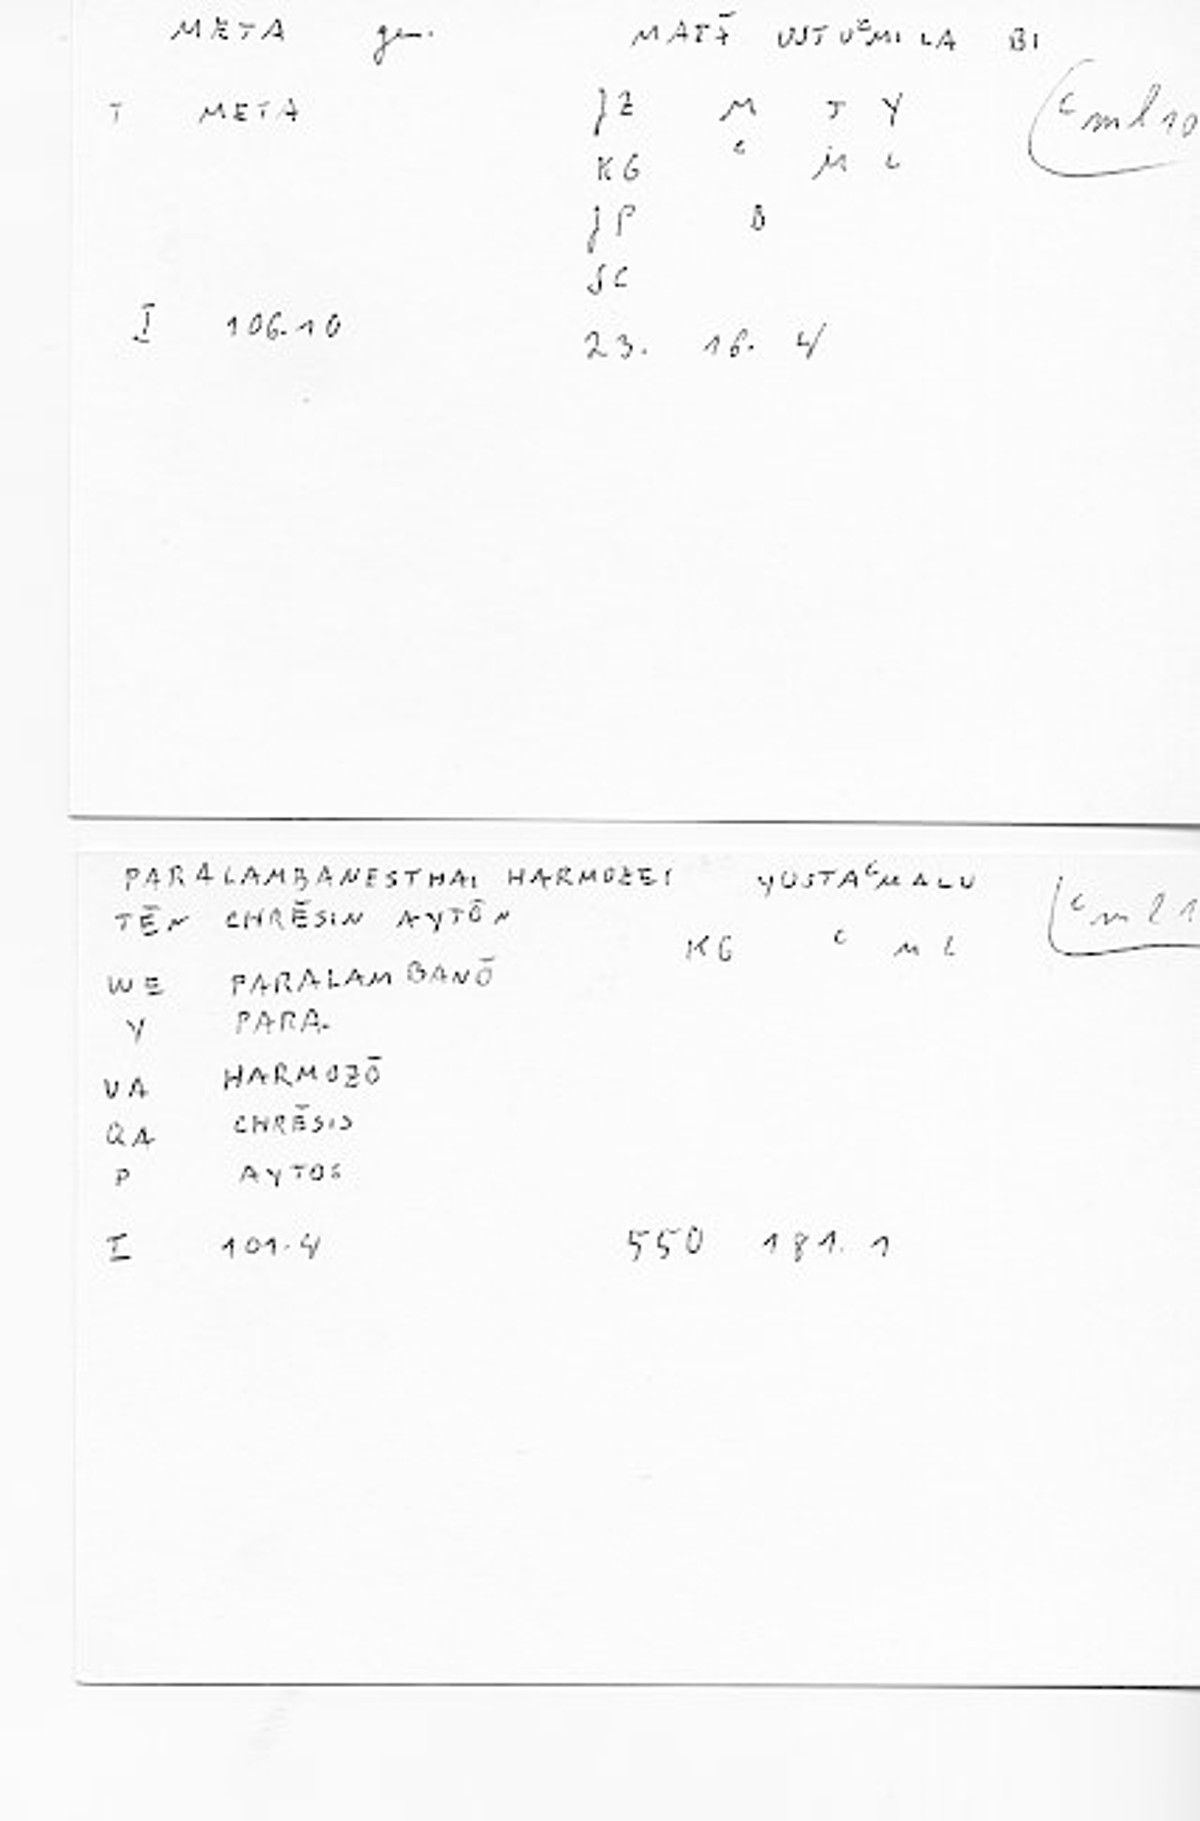 META gen. MATĀ USTUʿMILA BI
T META JZ M T Y ʿml10
KG ʿ M L
JP B
SC
I 106.10 23. 16. 4
PARALAMBANESTHAI HARMOZEI YUSTAʿMALU ʿml1
TĒN CHRĒSIN AYTŌN
KG ʿ M L
WE PARALAMBANŌ
Y PARA.
VA HARMOZŌ
QA CHRĒSIS
P AYTOS
I 101.4 550 181. 1